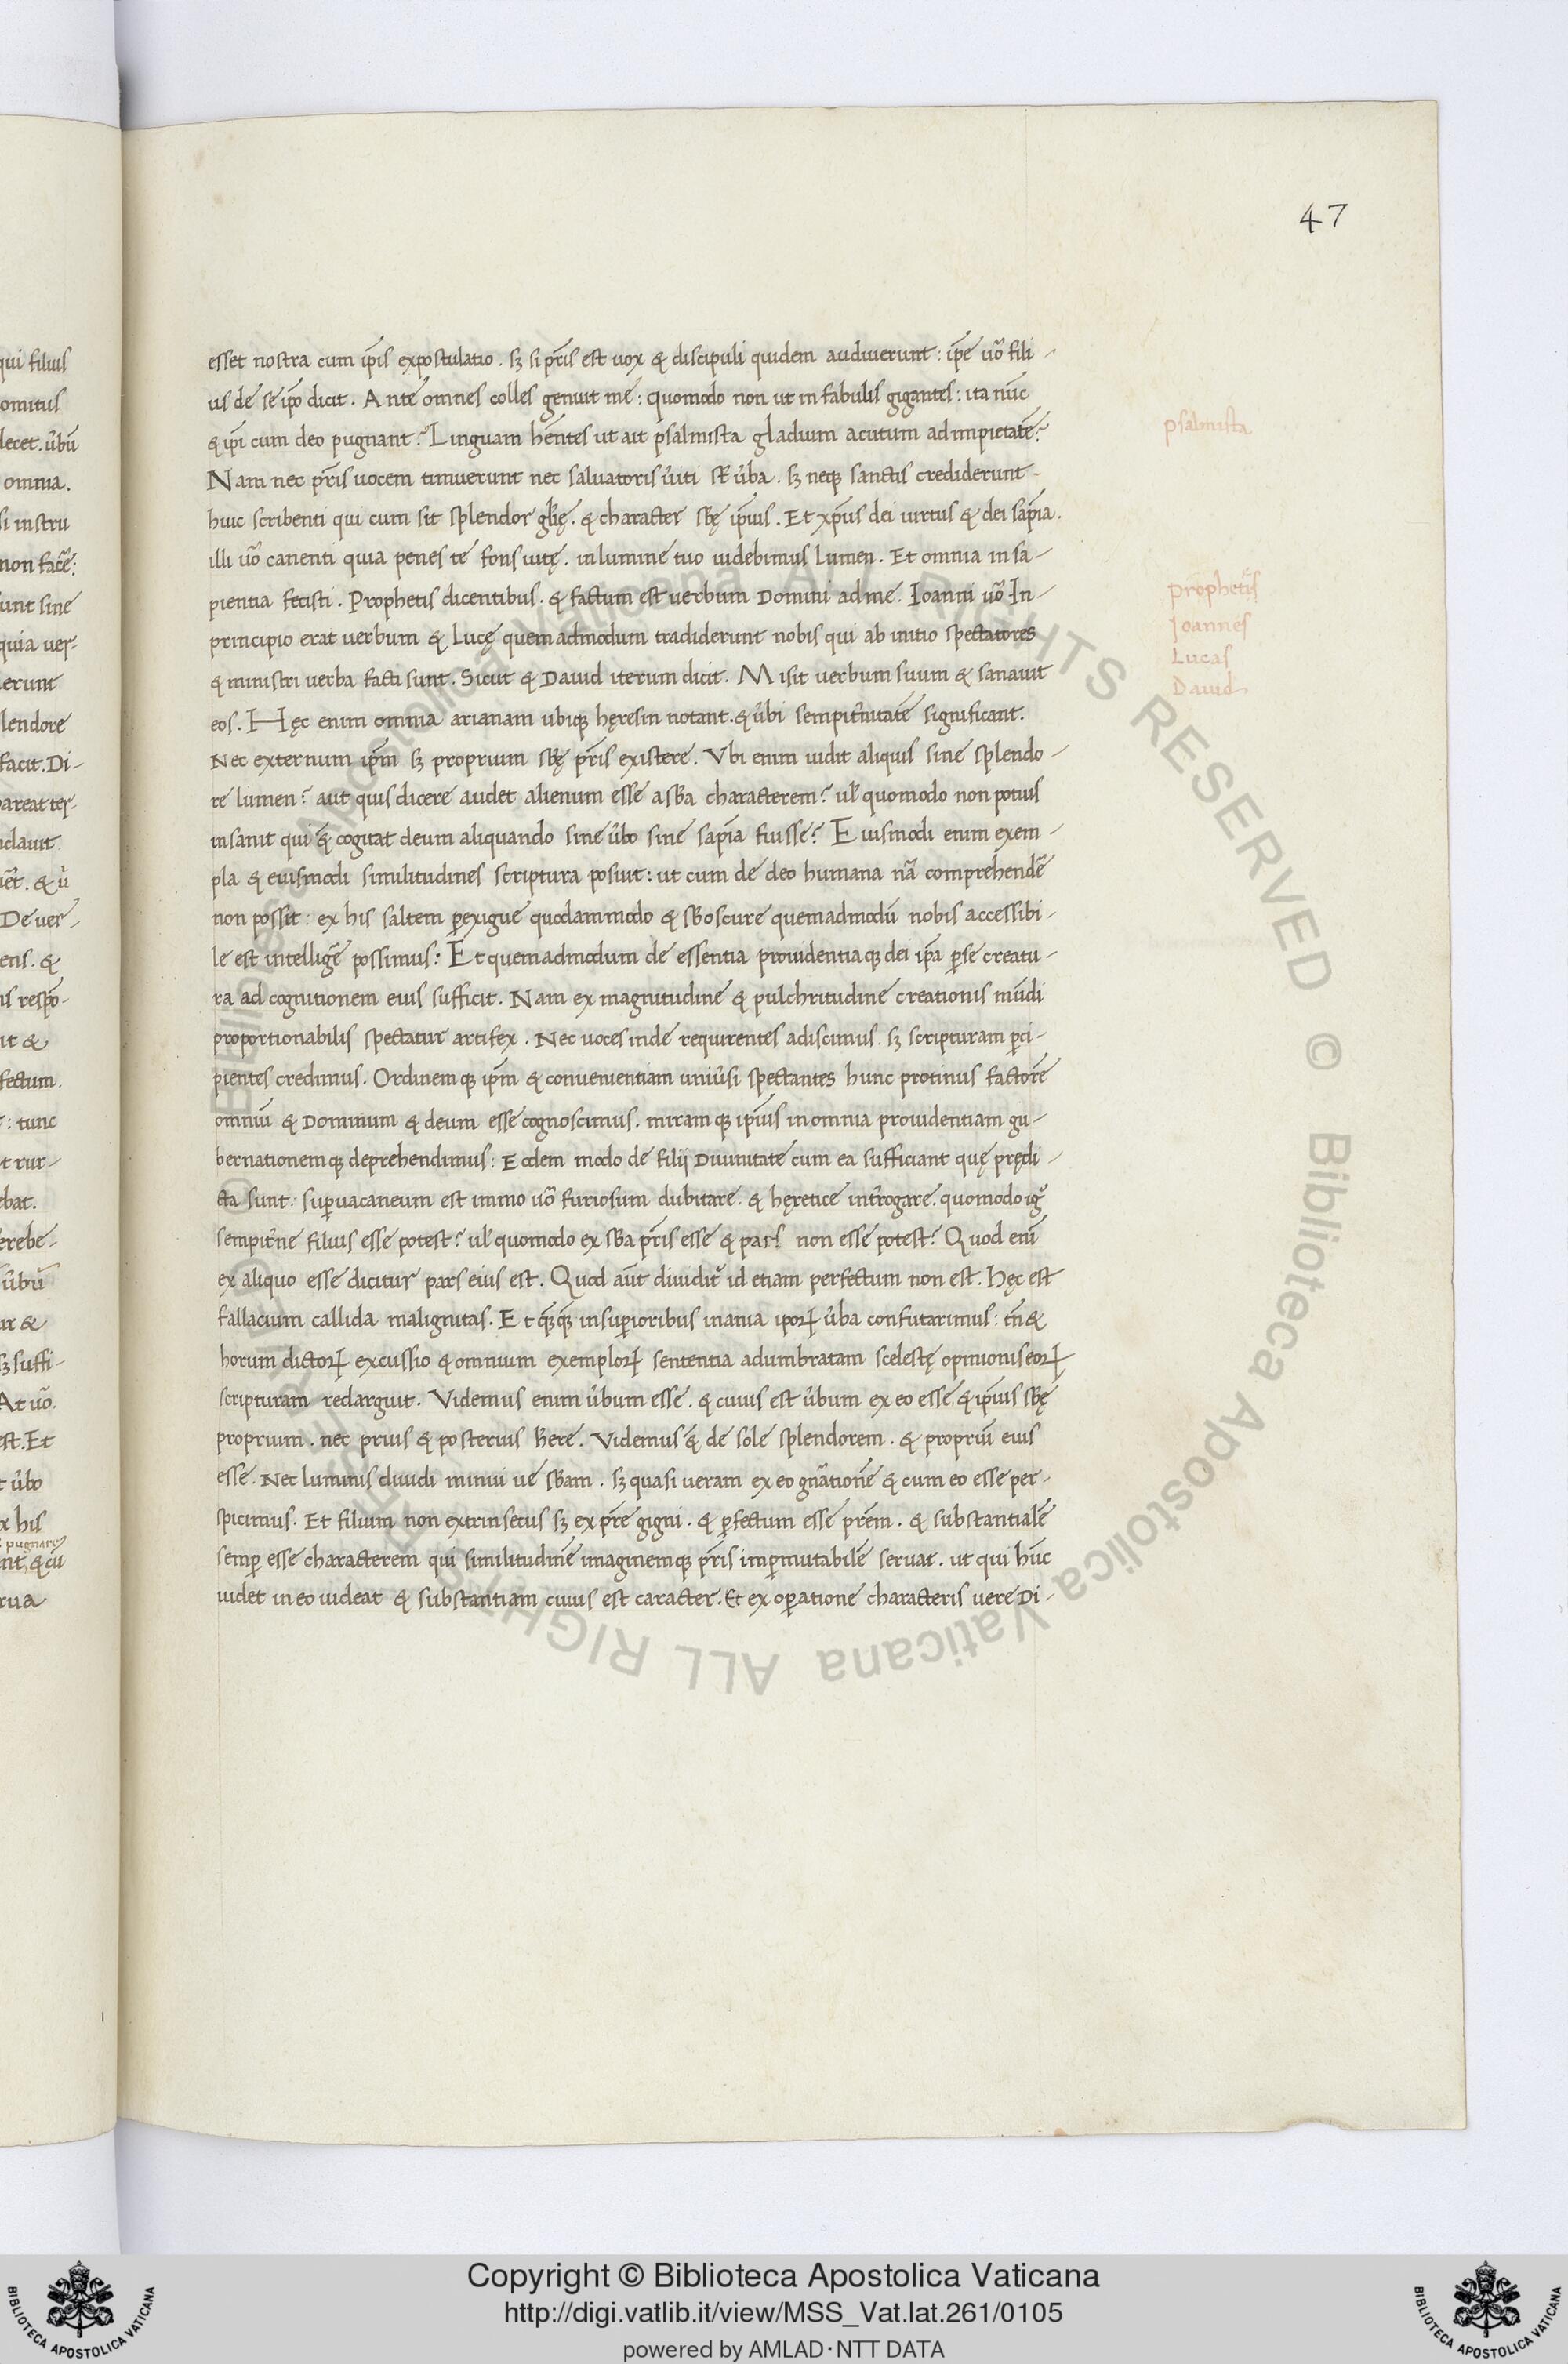 47
esset nostra cum ip̄is expostulatio. sꝫ si pr̄is est uox & discipuli quidem audiuerunt: ip̄e uõ fili-
us de se ip̄o dicit. Ante omnes colles genuit me: quomodo non ut in fabulis gigantes: ita nūc
& ip̄i cum deo pugnant? Linguam hēntes ut ait psalmista gladium acutum ad impietatē?
psalmista
Nam nec pr̄is uocem timuerunt nec saluatoris ũiti st̃ ũba. sꝫ neqꝫ sanctis crediderunt-
huic scribenti qui cum sit splendor gl̄ię. & character sb̄ę ip̄ius. Et xp̄us dei uirtus & dei sap̄ia.
illi uõ canenti quia penes te fons uitę. in lumine tuo uidebimus lumen. Et omnia in sa-
pientia fecisti. Prophetis dicentibus. & factum est uerbum Domini ad me. Ioanni uõ In-
prophetis
principio erat uerbum & Lucę quemadmodum tradiderunt nobis qui ab initio spectatores
Joannes
Lucas
& ministri uerba facti sunt. Sicut & Dauid iterum dicit. Misit uerbum suum & sanauit
Dauid
eos. Hęc enim omnia arianam ubiqꝫ hęresin notant. & ũbi sempit̃nitatē significant.
Nec externum ip̄m sꝫ proprium sb̄ę pr̄is existere. Vbi enim uidit aliquis sine splendo-
re lumen? aut quis dicere audet alienum esse a sb̄a characterem? ul̃ quomodo non potius
insanit qui & cogitat deum aliquando sine ũbo sine sap̄ia fuisse? Eiusmodi enim exem-
pla & eiusmodi similitudines scriptura posuit: ut cum de deo humana nã comprehendẽ
non possit: ex his saltem ꝑexigue quodammodo & sb̄oscure quemadmodū nobis accessibi-
le est intelligẽ possimus: Et quemadmodum de essentia prouidentiaqꝫ dei ip̄a ꝑ se creatu-
ra ad cognitionem eius sufficit. Nam ex magnitudine & pulchritudine creationis mūdi
proportionabilis spectatur artifex. Nec uoces inde requirentes adiscimus. sꝫ scripturam ꝑci-
pientes credimus. Ordinemqꝫ ip̄m & conuenientiam uniũsi spectantes hunc protinus factorē
omniū & Dominum & deum esse cognoscimus. miramqꝫ ip̄ius in omnia prouidentiam gu-
bernationemqꝫ deprehendimus: Eodem modo de filij Diuinitate cum ea sufficiant quę prędi-
cta sunt. suꝑuacaneum est immo uõ furiosum dubitare. & hęretice int̃rogare. quomodo ig̃
sempit̃ne filius esse potest? ul̃ quomodo ex sb̄a pr̄is esse & pars non esse potest? Quod enī
ex aliquo esse dicitur pars eius est. Quod aūt diuidit̃ id etiam perfectum non est. Hęc est
fallacium callida malignitas. Et qꝫqꝫ in suꝑioribus inania ipoꝝ ũba confutarimus: tn̄ &
horum dictoꝝ excussio & omnium exemploꝝ sententia adumbratam scelestę opinionis eoꝝ
scripturam redarguit. Videmus enim ũbum esse. & cuius est ũbum ex eo esse & ip̄ius sb̄ę
proprium. nec prius & posterius hēre. Videmus & de sole splendorem. & propriū eius
esse. Nec luminis diuidi minui ue sb̄am. sꝫ quasi ueram ex eo gñationē & cum eo esse per-
spicimus. Et filium non extrinsecus sꝫ ex pr̄e gigni. & ꝑfectum esse pr̄em. & substantialē
semꝑ esse characterem qui similitudinē imaginemqꝫ pr̄is imꝑmutabilē seruat. ut qui hūc
uidet in eo uideat & substantiam cuius est caracter. Et ex oꝑatione characteris uere Di-
Copyright © Biblioteca Apostolica Vaticana
http://digi.vatlib.it/view/MSS_Vat.lat.261/0105
powered by AMLAD·NTT DATA